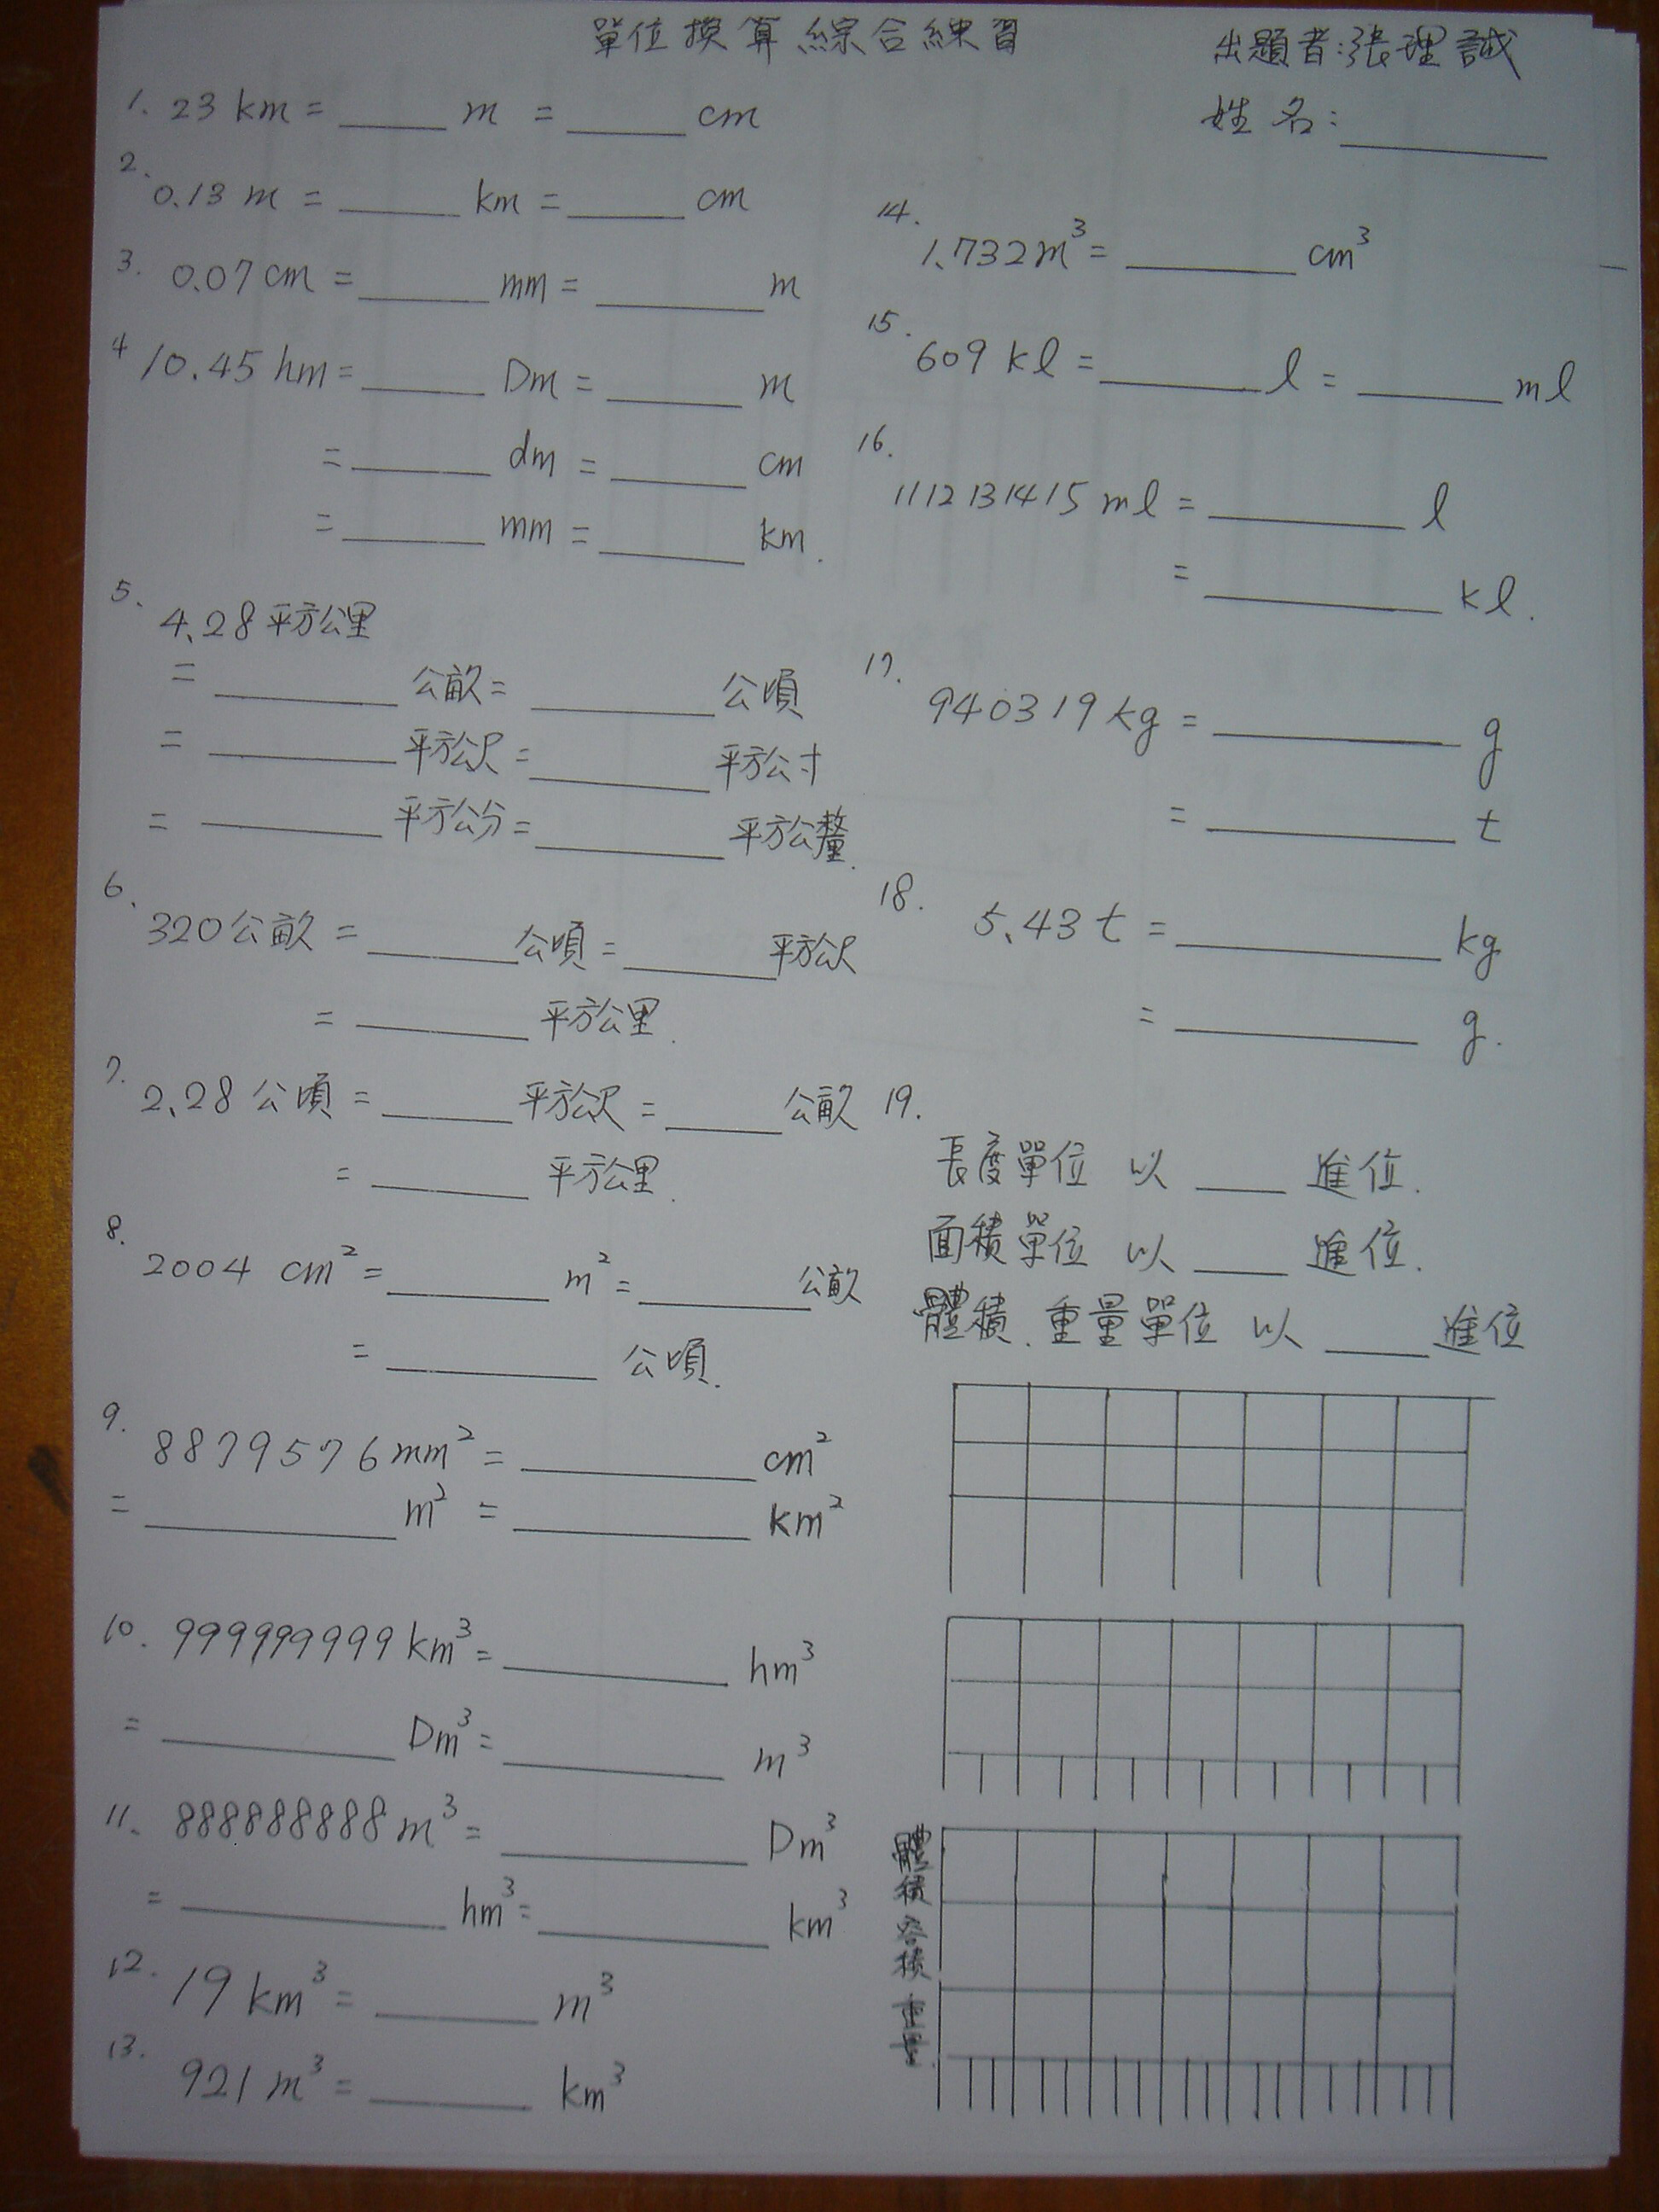 單位換算綜合練習
出題者:張理誠
姓名:______
1. 23 km = ______ m = ______ cm
2. 0.13 m = ______ km = ______ cm
3. 0.07 cm = ______ mm = ______ m
4 10.45 hm = ______ Dm = ______ m
= ______ dm = ______ cm
= ______ mm = ______ km.
5、4、28平方公里
= ______ 公畝 = ______ 公頃
= ______ 平方公尺 = ______ 平方公寸
= ______ 平方公分 = ______ 平方公釐.
6、320公畝 = ______ 公頃 = ______ 平方公尺
= ______ 平方公里.
7. 2、28 公頃 = ______ 平方公尺 = ______ 公畝
= ______ 平方公里.
8. 2004 cm² = ______ m² = ______ 公畝
= ______ 公頃.
9. 8879576 mm² = ______ cm²
= ______ m² = ______ km²
10. 999999999 km³ = ______ hm³
= ______ Dm³ = ______ m³
11、888888888 m³ = ______ Dm³
= ______ hm³ = ______ km³
12. 19 km³ = ______ m³
13. 921 m³ = ______ km³
14. 1、732 m³ = ______ cm³
15. 609 kl = ______ l = ______ ml
16. 1112131415 ml = ______ l
= ______ kl.
17. 940319 kg = ______ g
= ______ t
18. 5、43 t = ______ kg
= ______ g.
19.
長度單位 以 ____ 進位.
面積單位 以 ____ 進位.
體積、重量單位 以 ____ 進位
體積容積重量